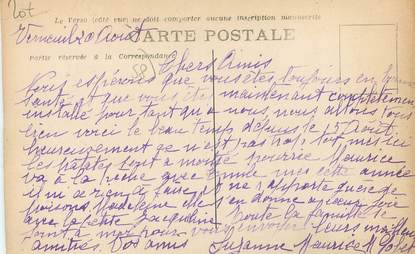 Lot
Le Verso (côté vue) ne doit comporter aucune inscription manuscrite
Verneuil 20 Août
CARTE POSTALE
Partie réservée à la Correspondance
58
Chers Amis
Nous espérons que vous êtes toujours en bonne
santé et que vous êtes maintenant complètement
installé pour tant qu'a nous, nous allons tous
bien voici le beau temps depuis le 15 Août
heureusement ce n'est pas trop tôt
les patates sont a moitié pourrie Maurice
va à la pêche que cette année
il n'y a rien à faire il ne rapporte guère de
poisons Madeleine elle s'en donne a cœur joie
avec la petite Jacqueline toute la famille se
joint a moi pour vous envoyer leurs meilleurs
amitiés. Vos amis Suzanne Maurice